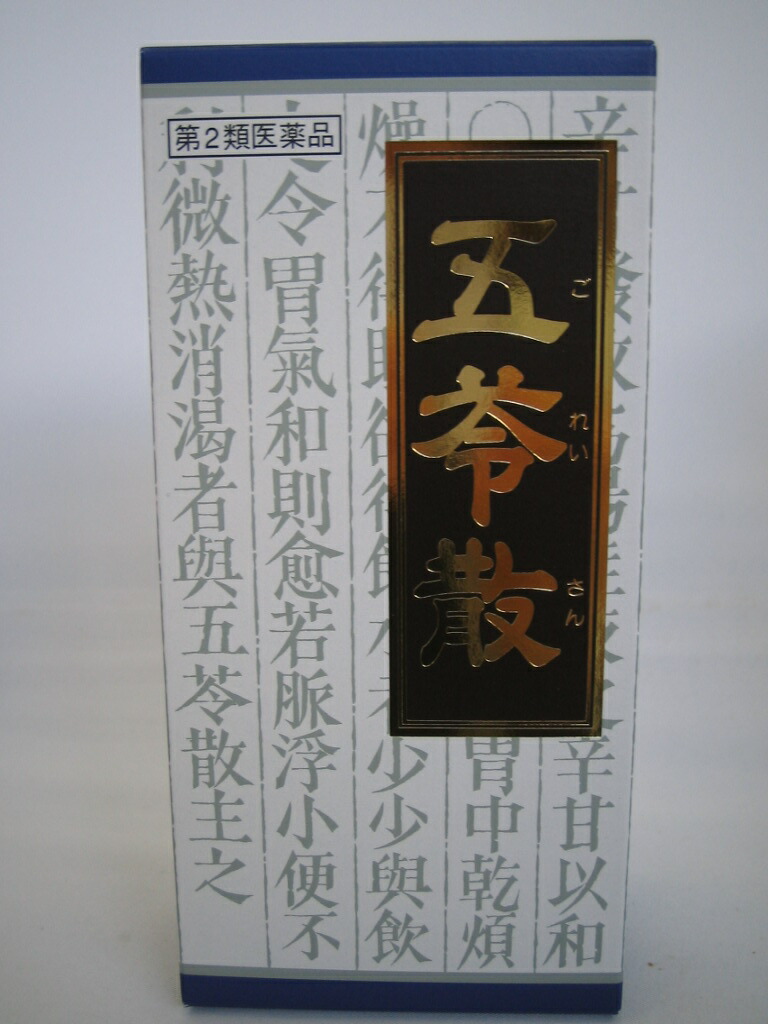 第2類医薬品
五苓散
ごれいさん
辛甘以和
胃中乾煩
燥
少少與飲
令胃氣和則愈若脈浮小便不
微熱消渴者與五苓散主之